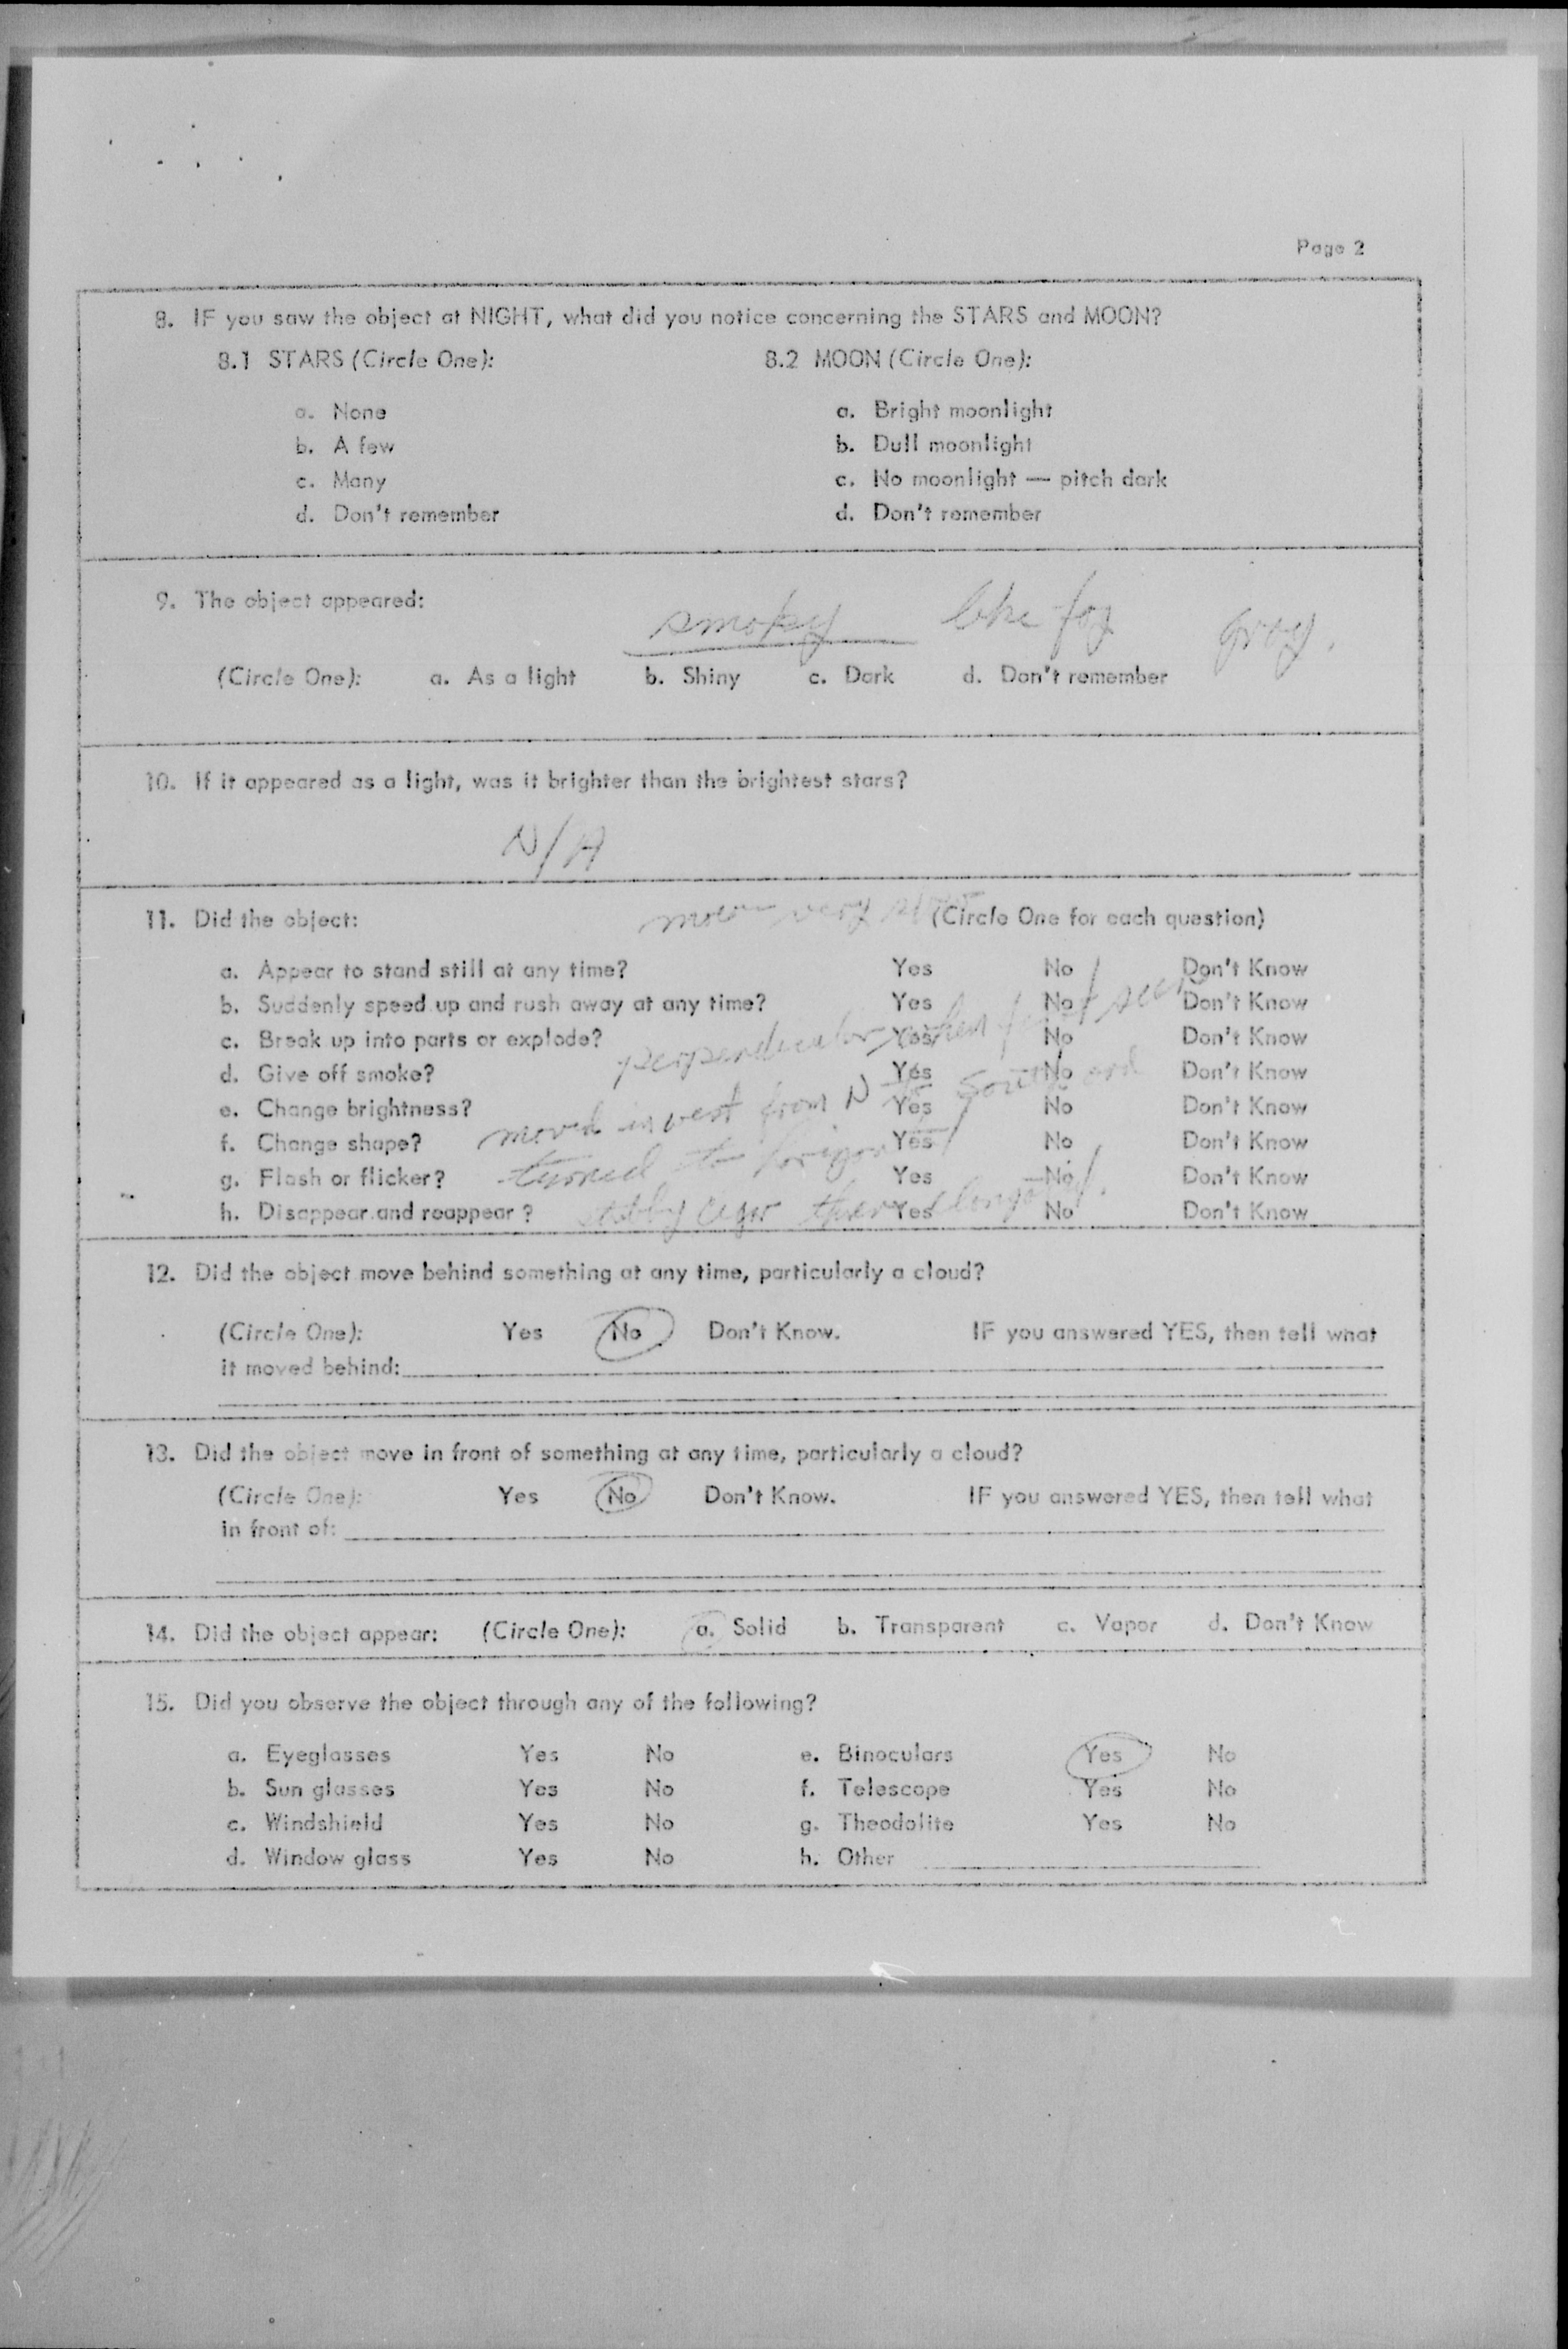 Page 2
8. IF you saw the object at NIGHT, what did you notice concerning the STARS and MOON?
8.1 STARS (Circle One): 8.2 MOON (Circle One):
a. None a. Bright moonlight
b. A few b. Dull moonlight
c. Many c. No moonlight — pitch dark
d. Don't remember d. Don't remember
9. The object appeared:
smoky like fog grey.
(Circle One): a. As a light b. Shiny c. Dark d. Don't remember
10. If it appeared as a light, was it brighter than the brightest stars?
N/A
11. Did the object: (Circle One for each question)
very slow
a. Appear to stand still at any time? Yes No Don't Know
b. Suddenly speed up and rush away at any time? Yes No Don't Know
c. Break up into parts or explode? Yes No Don't Know
perpendicular when first seen
d. Give off smoke? Yes No Don't Know
e. Change brightness? Yes No Don't Know
moved in west from N to South and
f. Change shape? Yes No Don't Know
turned to horizontal
g. Flash or flicker? Yes No Don't Know
h. Disappear and reappear? Yes No Don't Know
cigar then elongated.
12. Did the object move behind something at any time, particularly a cloud?
(Circle One): Yes No Don't Know. IF you answered YES, then tell what
it moved behind:
13. Did the object move in front of something at any time, particularly a cloud?
(Circle One): Yes No Don't Know. IF you answered YES, then tell what
in front of:
14. Did the object appear: (Circle One): a. Solid b. Transparent c. Vapor d. Don't Know
15. Did you observe the object through any of the following?
a. Eyeglasses Yes No e. Binoculars Yes No
b. Sun glasses Yes No f. Telescope Yes No
c. Windshield Yes No g. Theodolite Yes No
d. Window glass Yes No h. Other